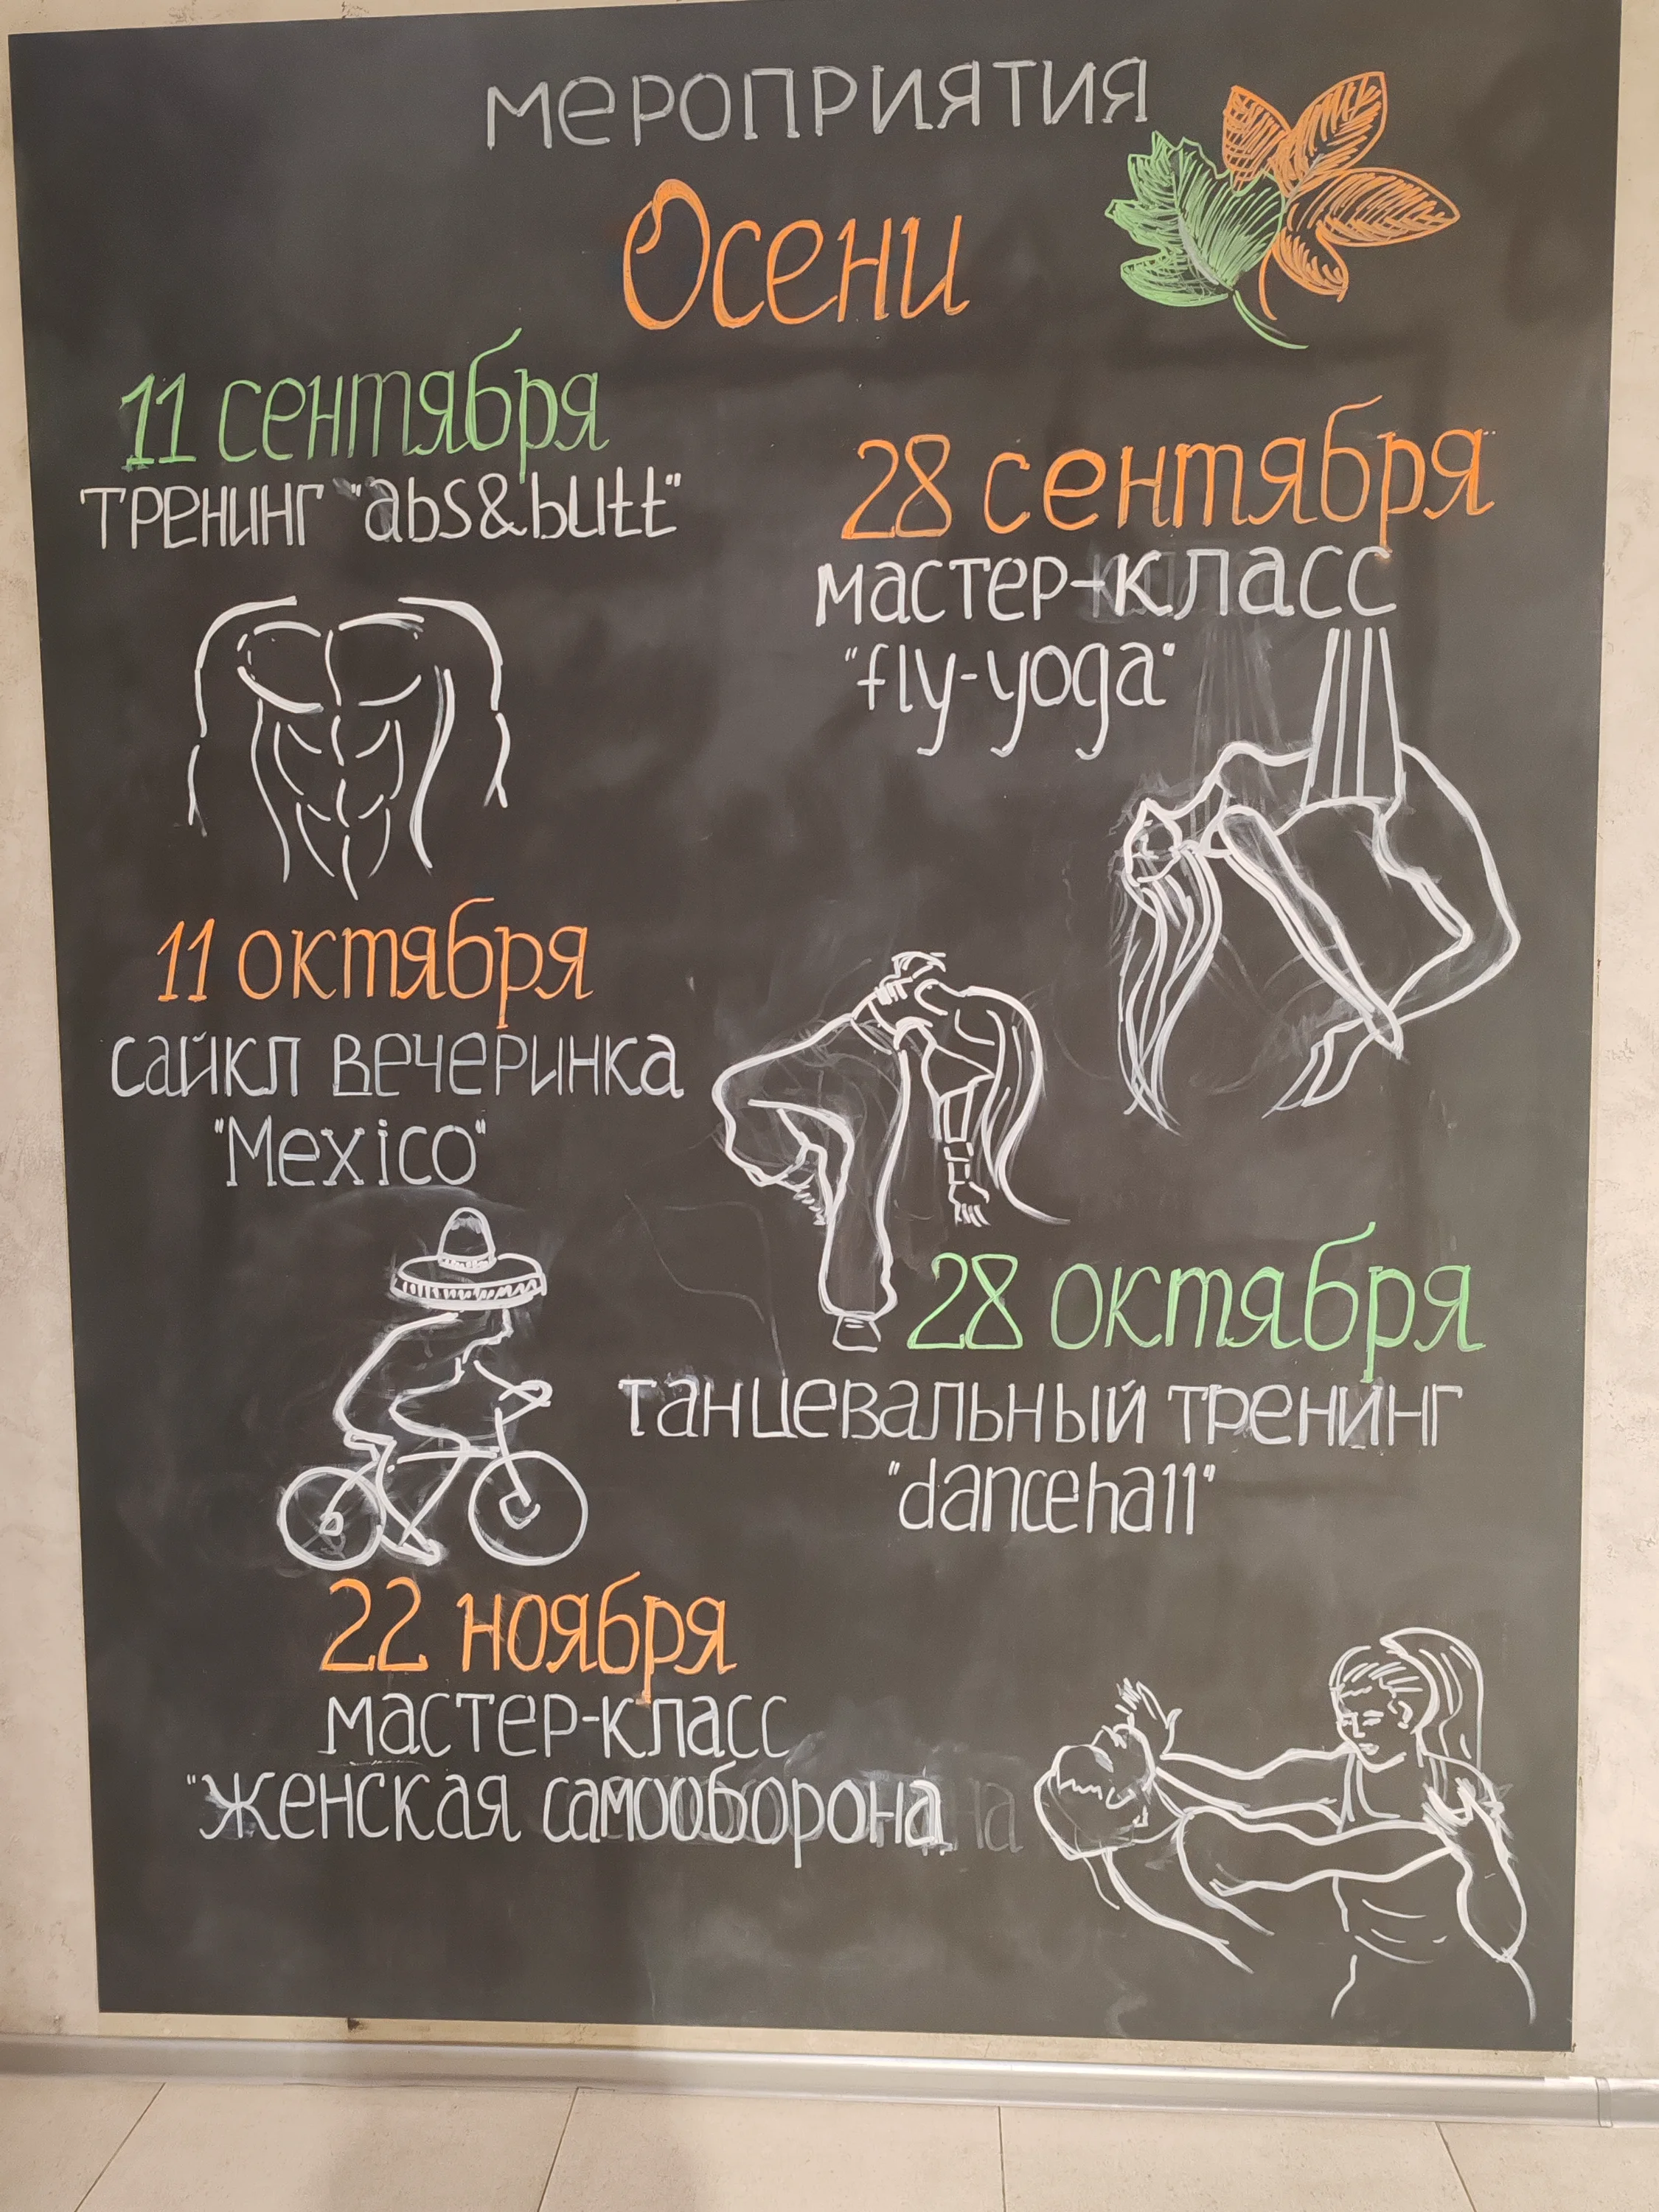 мероприятия
Осени
11 сентября
тренинг "abs&butt"
28 сентября
мастер-класс
"fly-yoga"
11 октября
сайкл вечеринка
"Mexico"
28 октября
танцевальный тренинг
"dancehall"
22 ноября
мастер-класс
"женская самооборона